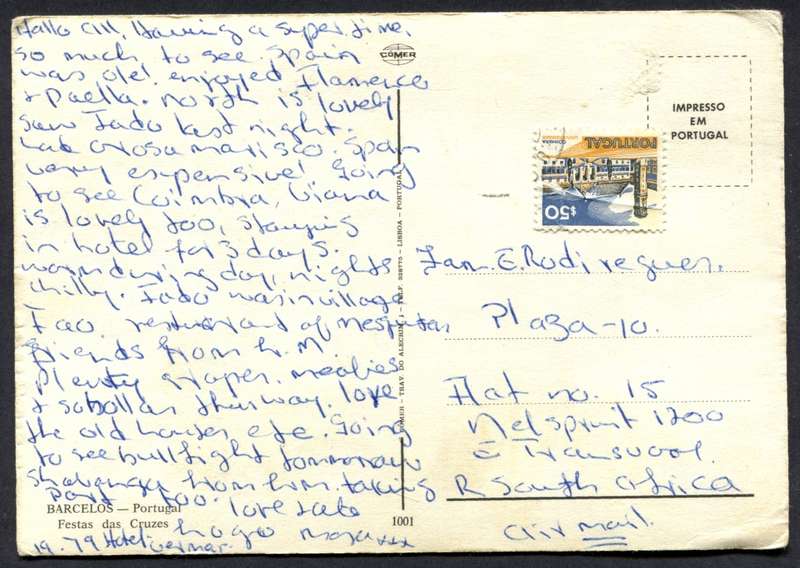 Hallo All, Having a super time,
so much to see. Spain
was olé! enjoyed Flamenco
& Paella. north is lovely
saw Fado last night.
Spain
very expensive! Going
to see Coimbra, Viana
is lovely too, staying
in hotel for 3 days.
warm during day, nights
chilly. Fado was in village
Fao. restaurant of
friends from L.M.
Plenty grapes. mealies
& sebollas this way. love
the old houses etc. Going
to see bullfight tommorow
from L.M. taking
part too. love
xxx
19.79 Hotel
BARCELOS — Portugal
Festas das Cruzes
1001
COMER
COMER - TRAV. DO ALECRIM, - TELF. 328775 - LISBOA - PORTUGAL
IMPRESSO
EM
PORTUGAL
PORTUGAL
$50
Fam. E. Rodireguer.
Plaza-10.
Flat no. 15
Nelspruit 1200
E Transvaal.
R South Africa
Air mail.